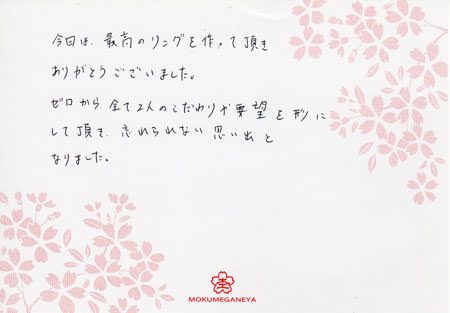 今回は、最高のリングを作って頂き
ありがとうございました。
ゼロから全て2人のこだわりや要望を形に
して頂き、忘れられない思い出と
なりました。
MOKUMEGANEYA